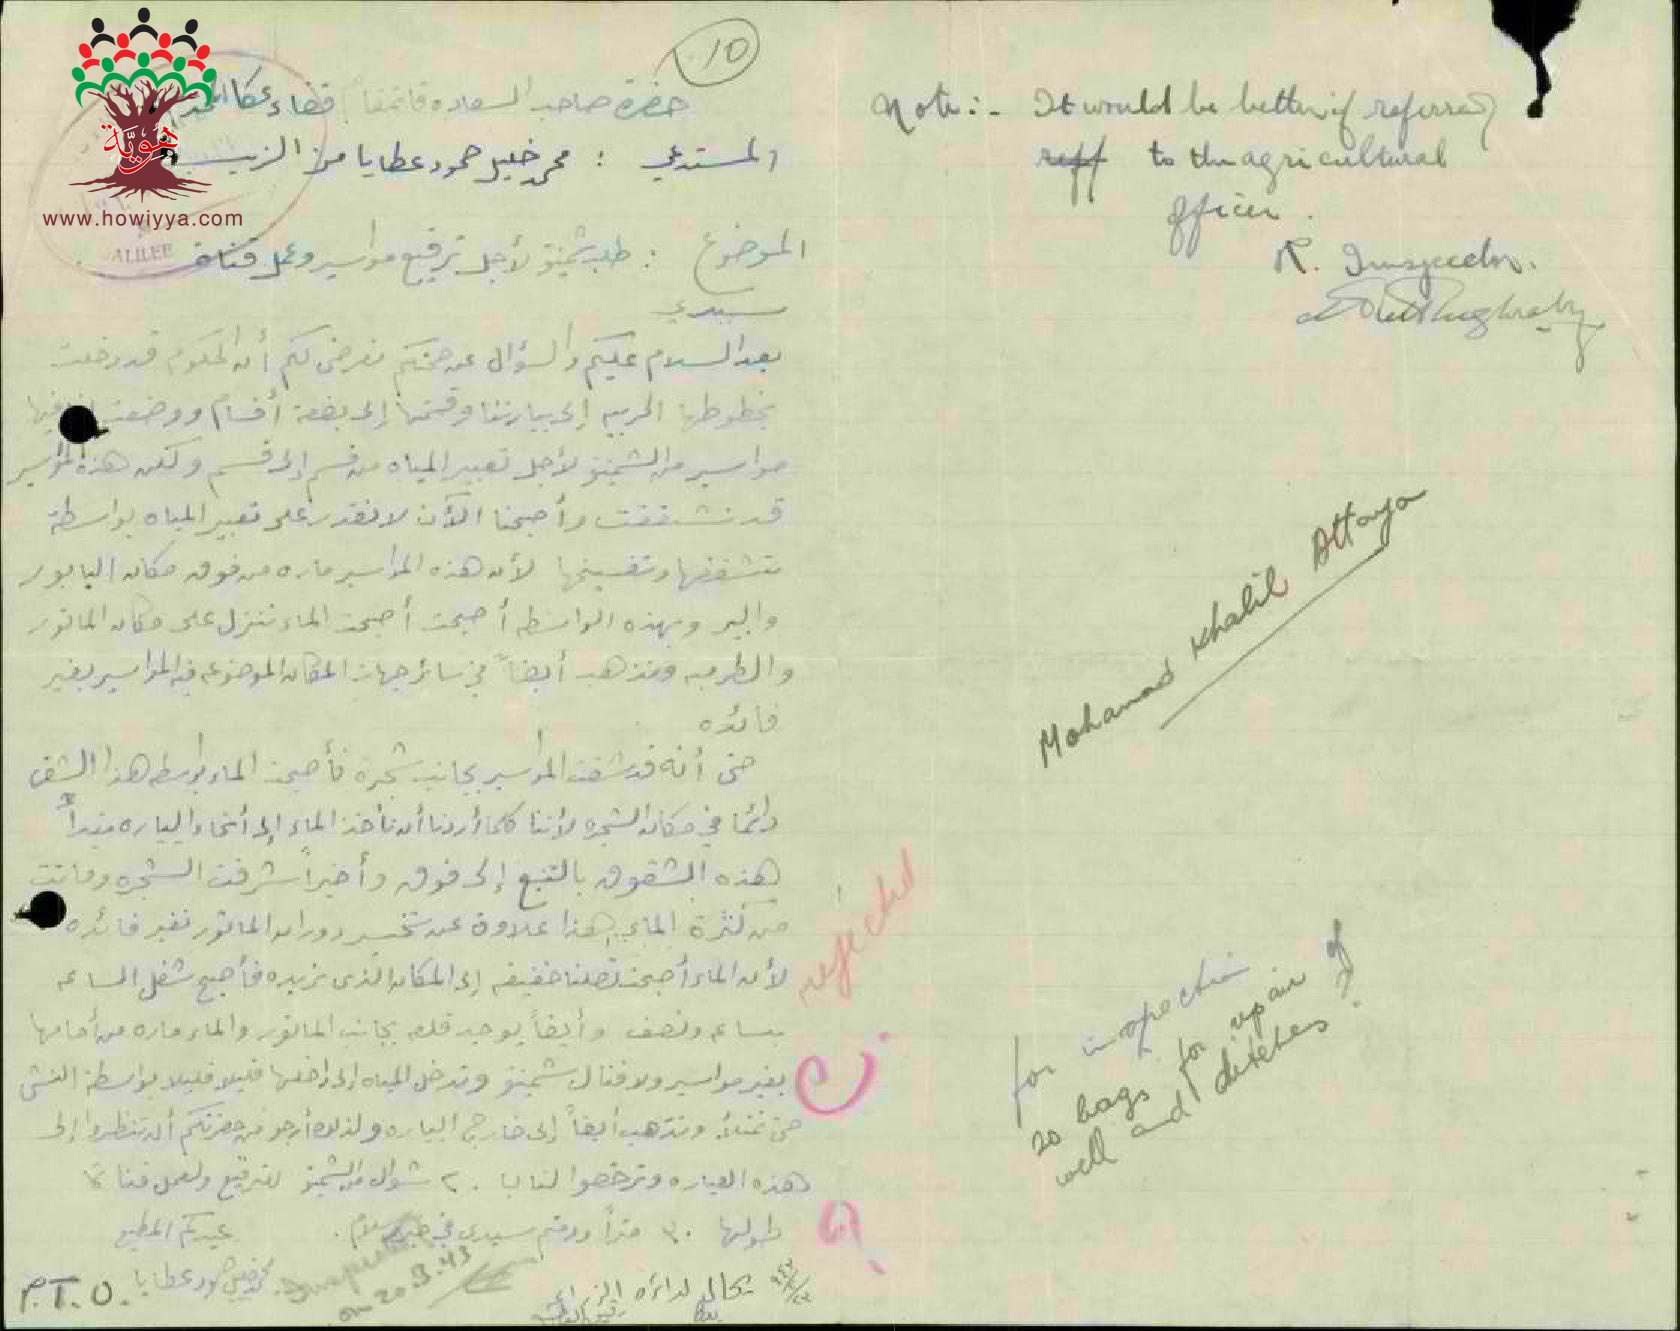 10
حضرة صاحب السعاده قائمقام قضاء عكا المحترم
المستدعي : محمد خليل حمود عطايا من الزيب
الموضوع : طلب شمينتو لأجل ترقيع مواسير وعمل قناة
سيدي
بعد السلام عليكم والسؤال عن صحتكم نعرض لكم أن الحكومه قد دخلت
بخطوطها الحربيه إلى بيارتنا وقسمتها إلى بضعة أقسام ووضعت فيها
مواسير من الشمينتو لأجل تعبير المياه من قسم إلى قسم ولكن هذه المواسير
قد تشققت وأصبحنا الآن لا نقدر على تعبير المياه بواسطة
تشققها وتفسيخها لأن هذه المواسير ماره من فوق مكان البابور
والبير وبهذه الواسطه أصبحت أصبحت الماء تنزل على مكان الماتور
والطرمبه وتذهب أيضاً في سائر جهات المكان الموضوعه فيه المواسير بغير
فائده
حتى أنه قد شقت المواسير بجانب شجرة فأصبحت الماء بواسطة هذا الشق
دائما في مكان الشجره لأننا كلما أردنا أن نأخذ الماء إلى أنحاء البياره
هذه الشقوق بالنبع إلى فوق وأخيراً شرقت الشجره وماتت
من كثرة الماء هذا علاوة عن دوران الماتور بغير فائده
لأن الماء أصبحت تصلنا خفيفه إلى المكان الذي نريده فأصبح شغل الساعه
بساعه ونصف وأيضاً يوجد قلعه بجانب الماتور والماء ماره من أمامها
بغير مواسير ولا قنال شمينتو وتدخل المياه إلى داخلها قليلا قليلا بواسطة النش
حتى تمتلأ وتذهب أيضاً إلى خارج البياره ولذلك أرجو من حضرتكم أن تنظروا إلى
هذه العباره وترخصوا لنا ٢٠ شوال من الشمينتو للترقيع ولعمل قناة
طولها ٣٠ متراً ودمتم سيدي
عبدكم المطيع
محمد خليل حمود عطايا
P.T.O.
on 20.3.43
تحال لدائرة الزراعه
Note:- It would be better if referred
reff to the agricultural
officer.
R. Inspector.
Mohamad Khalil Attaya
rejected
for inspection
20 bags for repair of
well and ditches?
هوية
www.howiyya.com
ALILEE